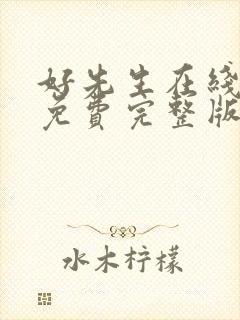 好先生在线
免费完整版
水木柠檬